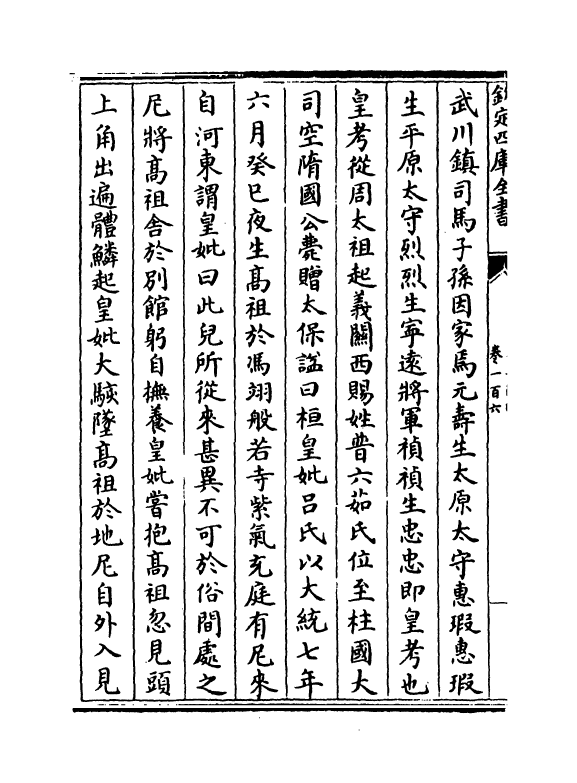 欽定四庫全書
卷一百六
武川鎮司馬子孫因家焉元壽生太原太守惠瑕惠瑕
生平原太守烈烈生寧遠將軍禎禎生忠忠即皇考也
皇考從周太祖起義關西賜姓普六茹氏位至柱國大
司空隋國公薨贈太保諡曰桓皇妣呂氏以大統七年
六月癸巳夜生髙祖於馮翊般若寺紫氣充庭有尼來
自河東謂皇妣曰此兒所從來甚異不可於俗間處之
尼將髙祖舍於別館躬自撫養皇妣嘗抱髙祖忽見頭
上角出遍體鱗起皇妣大駭墜髙祖於地尼自外入見